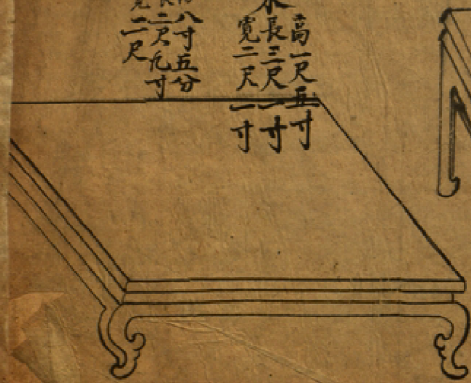 高一尺五寸
长長三尺一寸
寬二尺一寸
八寸五分
長二尺九寸
寬二尺